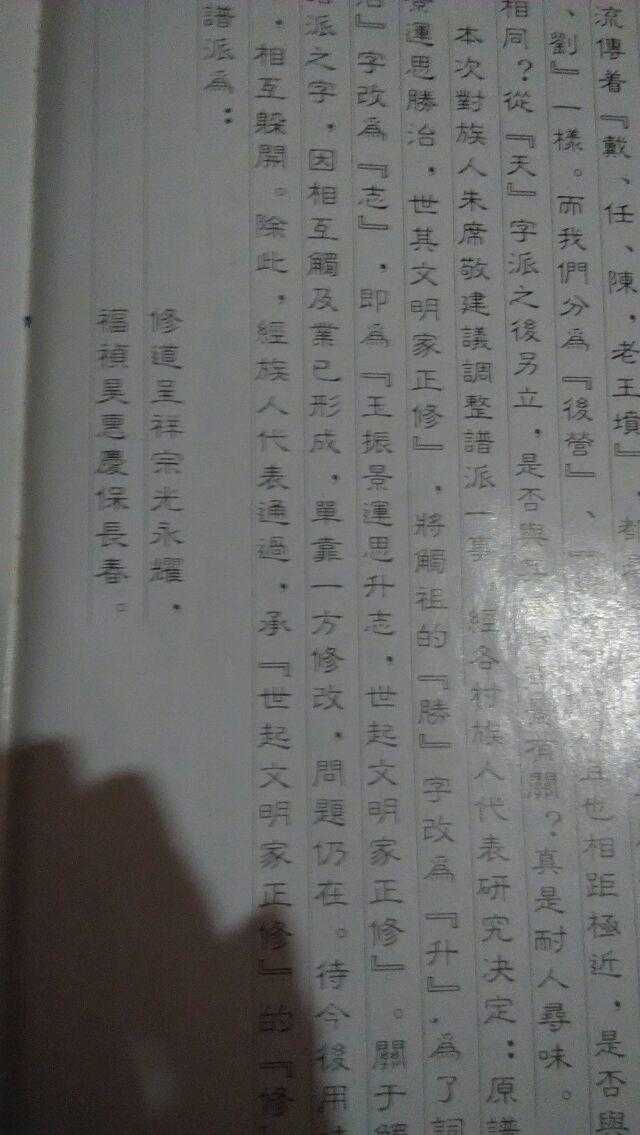 流傳着『戴、任、陳，老王墳』，都
、劉』一樣。而我們分為『後營』、　且也相距極近，是否與
相同？從『天』字派之後另立，是否與　有關？真是耐人尋味。
本次對族人朱席敬建議調整譜派一事　經各村族人代表研究決定：原譜
景運思勝治，世其文明家正修』，將觸祖的『勝』字改為『升』，為了
』字改為『志』，即為『王振景運思升志，世起文明家正修』。關于
派之字，因相互觸及業已形成，單靠一方修改，問題仍在。待今後用
，相互躲開。除此，經族人代表通過，承『世起文明家正修』的『修
譜派為：
修道呈祥宗光永耀，
福禎昊惠慶保長春。